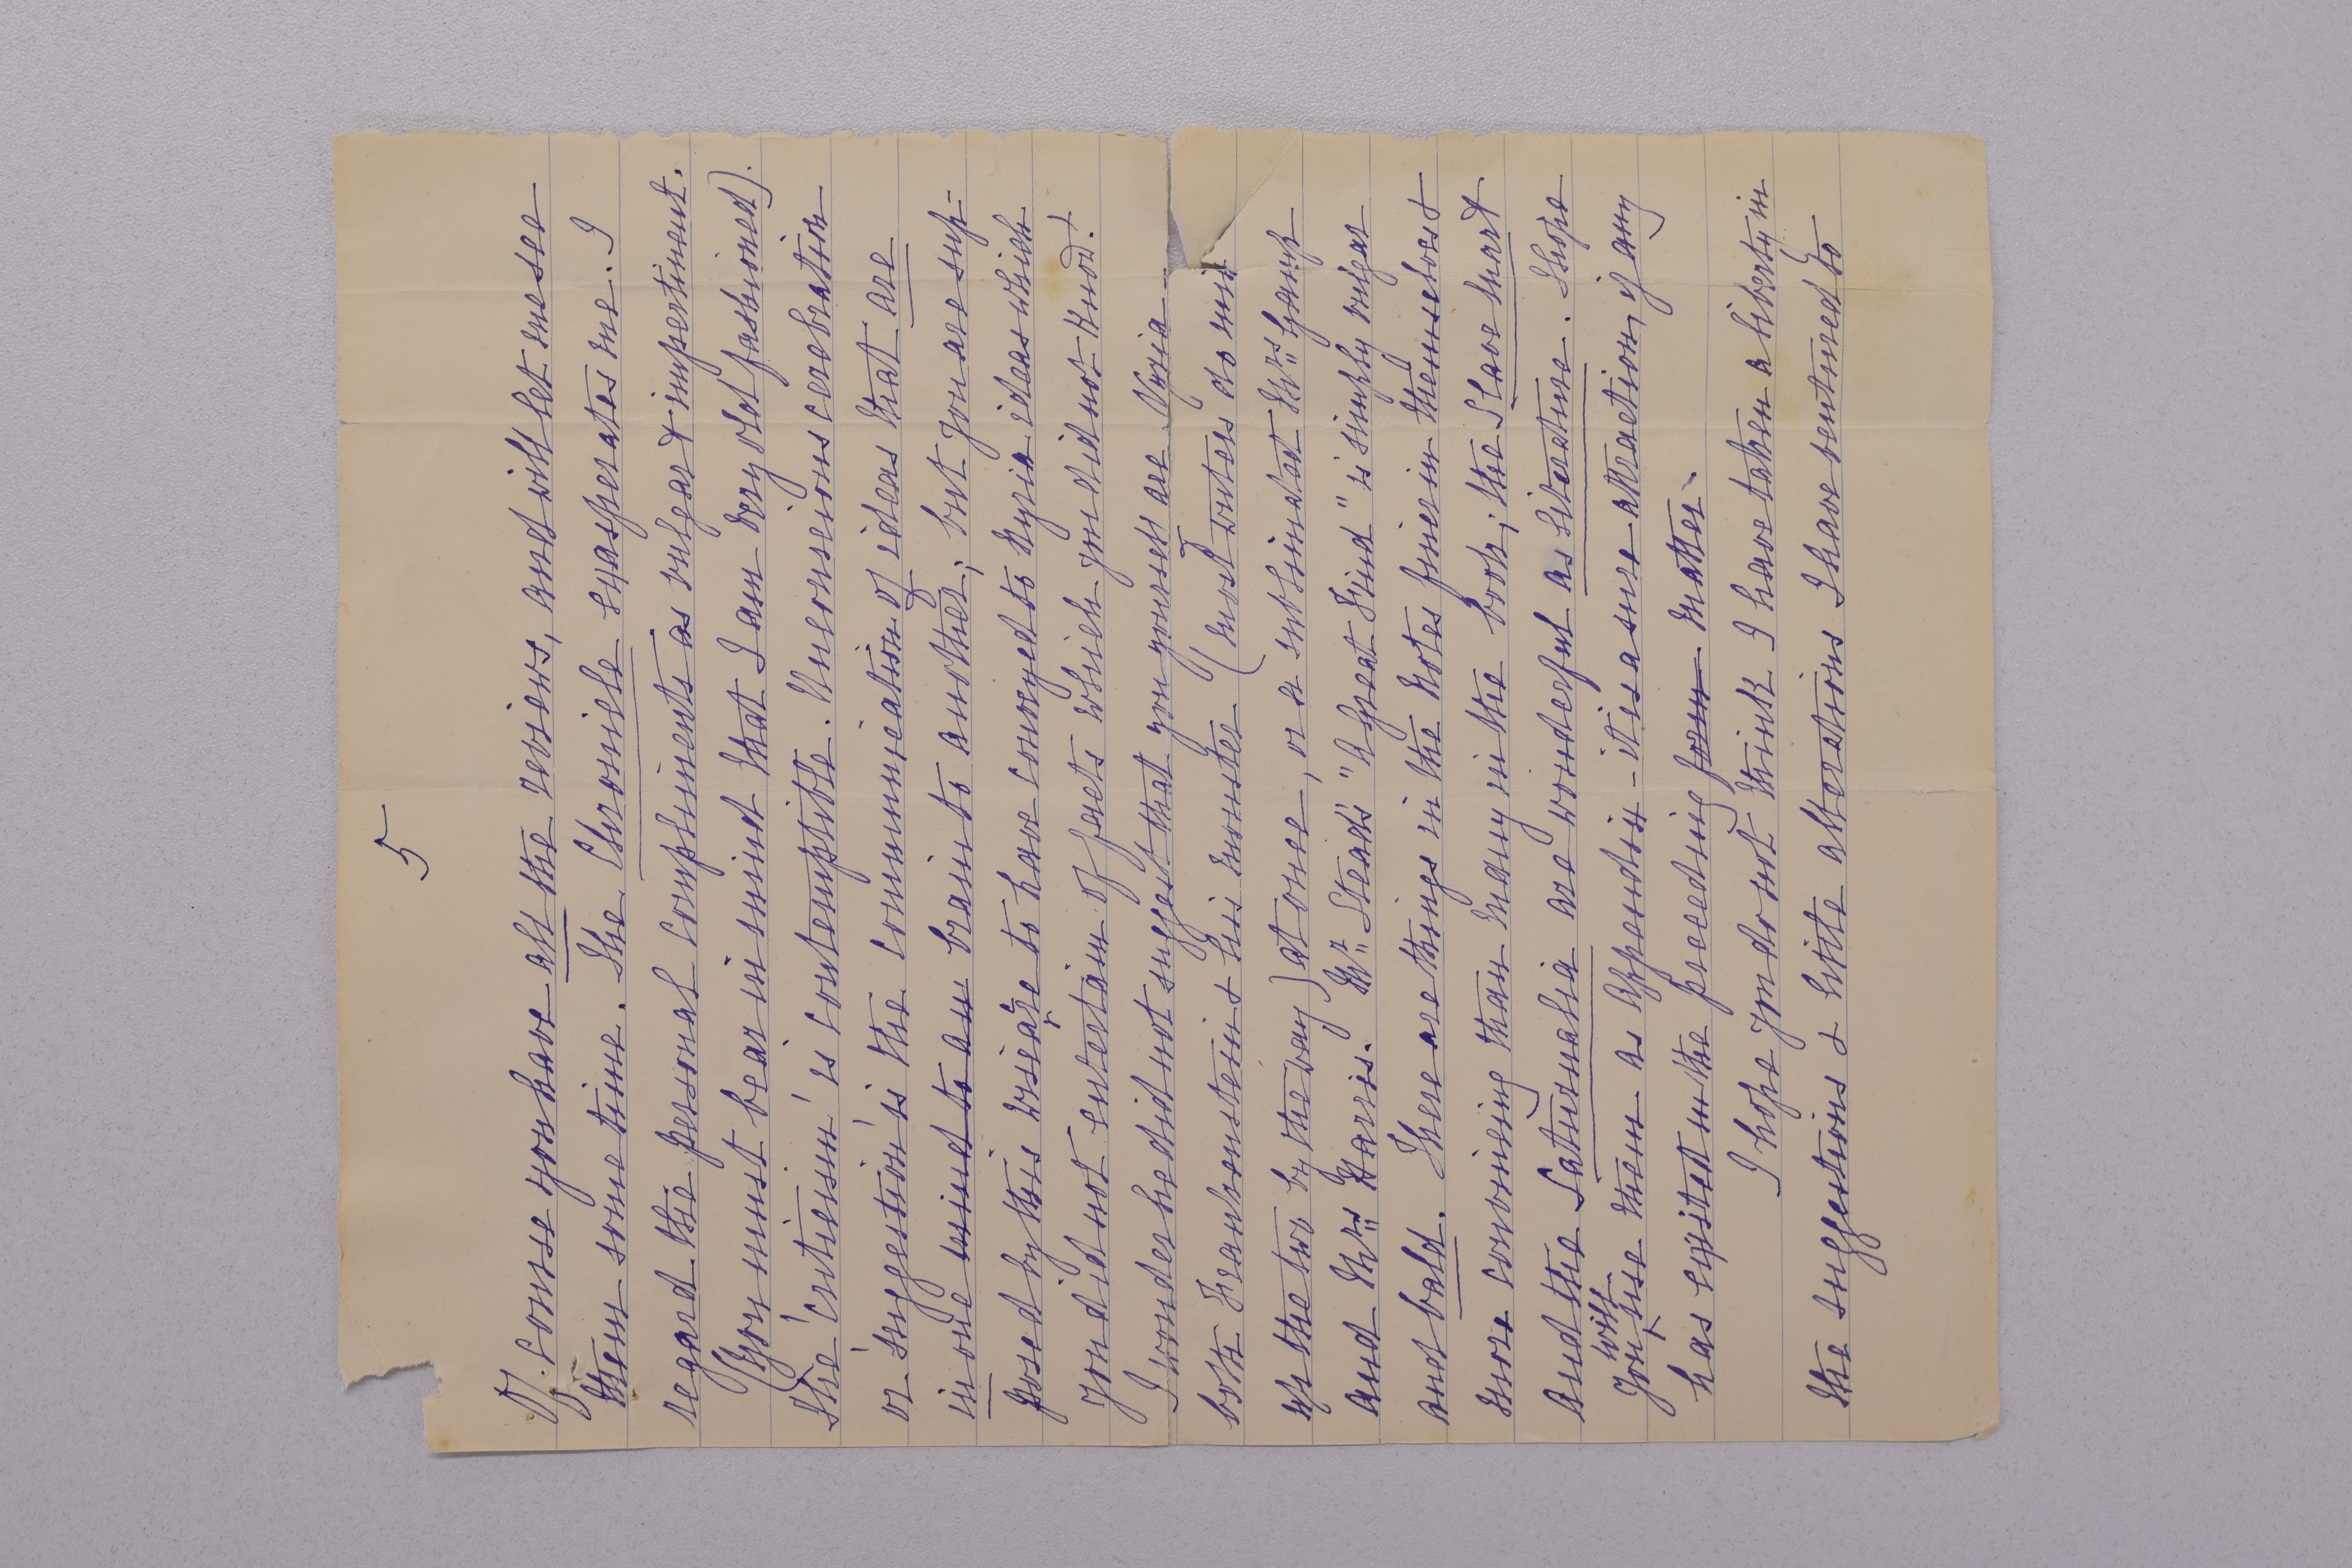 5
Of course you have all the reviews, and will let me see
them some time. The Chronicle exasperates me. I
regard the personal compliments as vulgar & impertinent.
(You must bear in mind that I am very old fashioned).
The 'criticism' is contemptible. Unconscious cerebration
or 'suggestion' is the communication of ideas that are
in one mind to an brain to another; but you are sup-
posed by this wiseacre to have conveyed to Nyria ideas which
you did not entertain of facts which you did not know!
I wonder he did not suggest that you yourself are Nyria –
both Frankenstein & his monster (most writers do mix
up the two by the way) at once, or a sublimated Mrs Gamp
and Mrs Harris. Mr Stead's "A Great Find" is simply vulgar
and bald. There are things in the Notes finer in themselves &
more convincing than many in the book; the Slave Mart
and the Saturnalia are wonderful as literature. I hope
you will use them as Appendix – it is a sure attraction, if any
has existed in the preceding form matter.
I hope you do not think I have taken a liberty in
the suggestions & little alterations I have ventured to